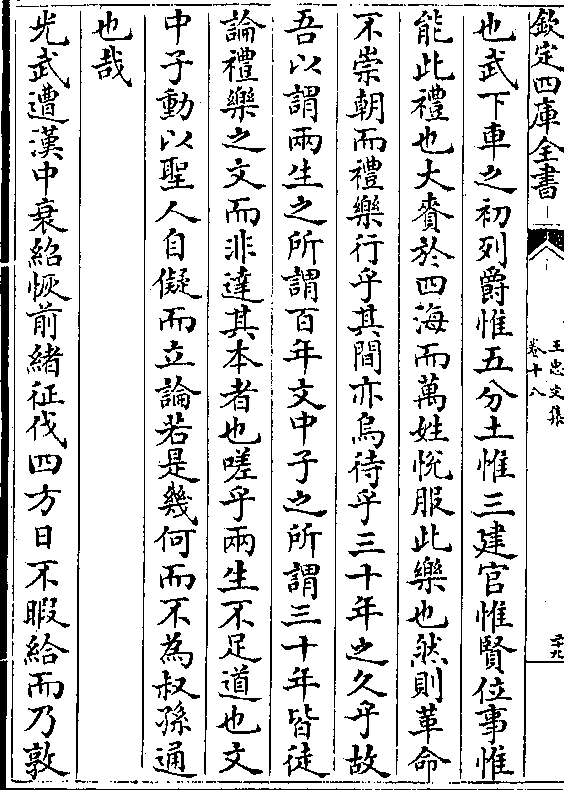 欽定四庫全書
王忠文集
卷十八
二十九
也武下車之初列爵惟五分土惟三建官惟賢位事惟
能此禮也大賚於四海而萬姓悅服此樂也然則革命
不崇朝而禮樂行乎其間亦烏待乎三十年之久乎故
吾以謂兩生之所謂百年文中子之所謂三十年皆徒
論禮樂之文而非達其本者也嗟乎兩生不足道也文
中子動以聖人自儗而立論若是幾何而不為叔孫通
也哉
光武遭漢中衰紹恢前緒征伐四方日不暇給而乃敦